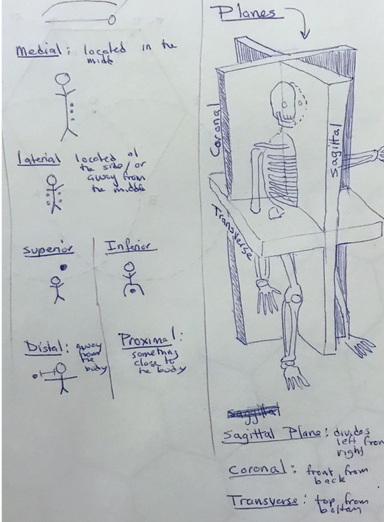 Medial: located in the
middle
Laterial located at
the side/or
away from
the middle
Superior
Inferior
Distal: away
from
the body
Proximal:
something
close to
the body
Planes
Coronal
Sagittal
Transverse
Saggital
Sagittal Plane: divides
left from
right
Coronal: front from
back
Transverse: top from
bottom